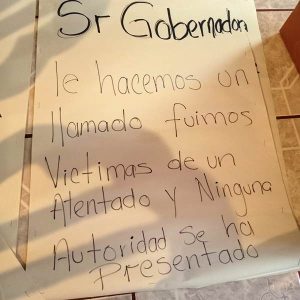 Sr Gobernador
le hacemos un
llamado fuimos
Victimas de un
Atentado y Ninguna
Autoridad se ha
Presentado